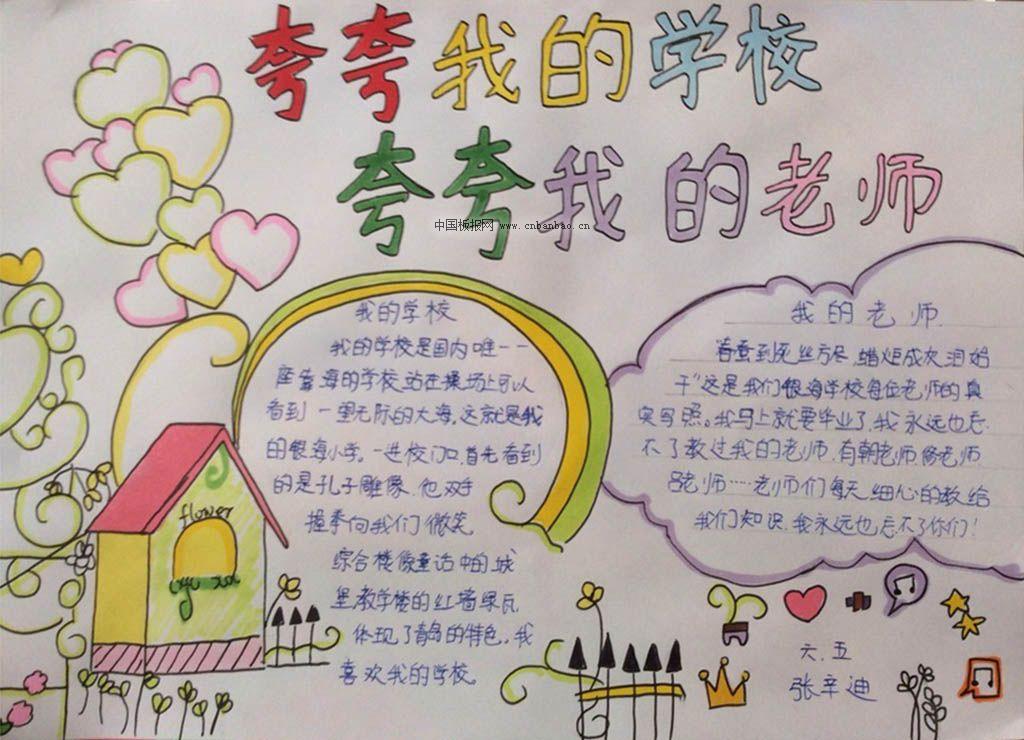 夸夸我的学校
夸夸我的老师
中国板报网 www.cnbanbao.cn
我的学校
我的学校是国内唯一一
座靠海的学校,站在操场上可以
看到一望无际的大海,这就是我
的银海小学。一进校门口,首先看到
的是孔子雕像,他双手
握拳向我们微笑
综合楼像童话中的城
堡,教学楼的红墙绿瓦
体现了青岛的特色,我
喜欢我的学校。
我的老师
春蚕到死丝方尽,蜡炬成灰泪始
干"这是我们银海学校每位老师的真
实写照。我马上就要毕业了,我永远也忘
不了教过我的老师,有朝老师、杨老师、
吕老师……老师们每天细心的教给
我们知识,我永远也忘不了你们!
flower
六.五
张辛迪